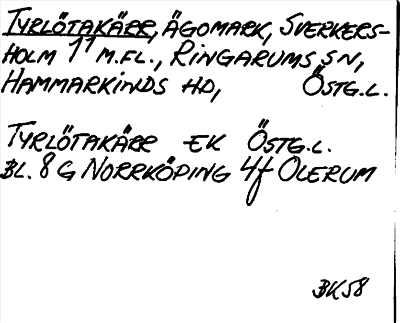 TYRLÖTAKÄRR, ÄGOMARK, SVERKERS-
HOLM 1¹ M.FL., RINGARUMS SN,
HAMMARKINDS HD, ÖSTG.L.
TYRLÖTAKÄRR EK ÖSTG.L.
BL. 8 G NORRKÖPING 4f OLERUM
BK58